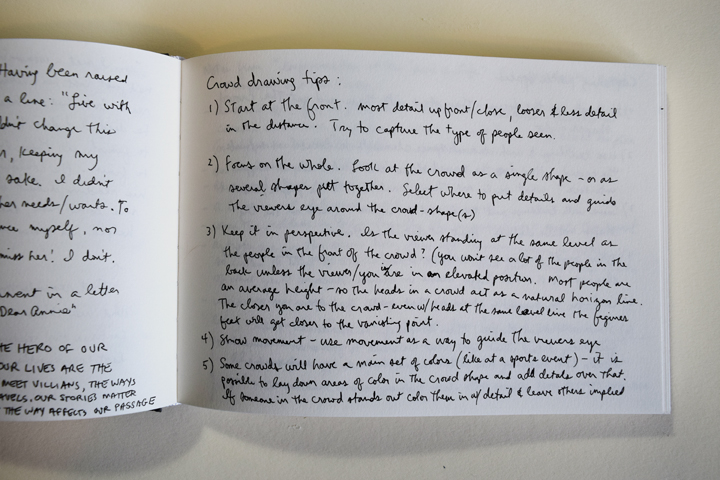 Having been raised
a line: "Live with
didn't change this
r, keeping my
sake. I didn't
her needs/wants. To
nce myself, nor
miss her! I don't.
ument in a letter
"Dear Annie"
HE HERO OF OUR
OUR LIVES ARE THE
MEET VILLIANS, THE WAYS
AVELS, OUR STORIES MATTER
THE WAY AFFECTS OUR PASSAGE
Crowd drawing tips:
1) Start at the front. most detail up front/close, looser & less detail
in the distance. Try to capture the type of people seen.
2) Focus on the whole. Look at the crowd as a single shape - or as
several shapes put together. Select where to put details and guide
the viewers eye around the crowd-shape(s)
3) Keep it in perspective. Is the viewer standing at the same level as
the people in the front of the crowd? (you won't see a lot of the people in the
back unless the viewer/you is/are in an elevated position. Most people are
an average height - so the heads in a crowd act as a natural horizon line.
The closer you are to the crowd - even w/ heads at the same level line the figures
feet will get closer to the vanishing point.
4) Show movement - use movement as a way to guide the viewers eye
5) Some crowds will have a main set of colors (like at a sports event) - it is
possible to lay down areas of color in the crowd shape and add details over that.
If someone in the crowd stands out color them in w/ detail & leave others implied